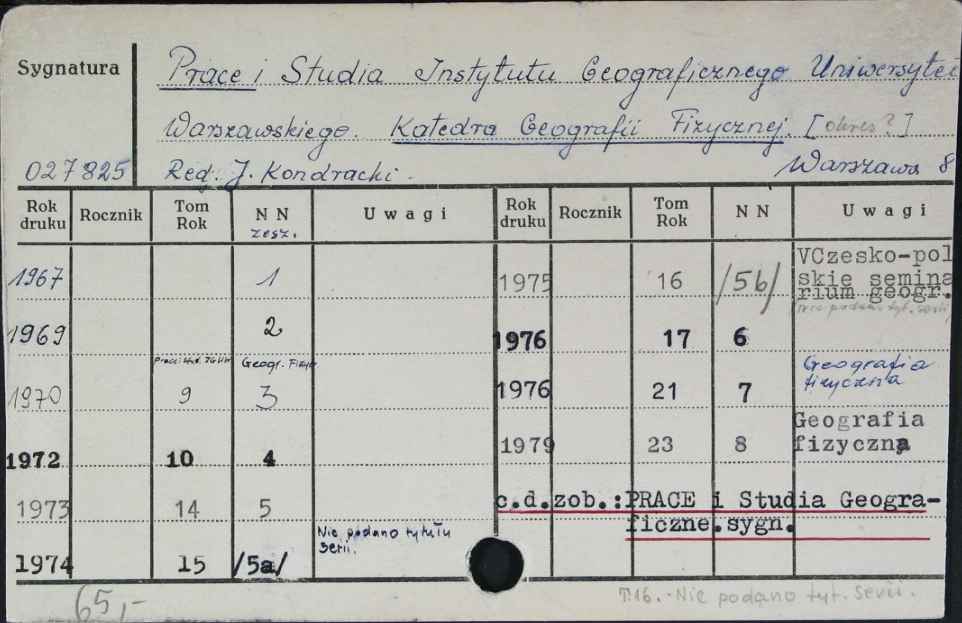 Sygnatura
Prace i Studia Instytutu Geograficznego Uniwersytet
Warszawskiego. Katedra Geografii Fizycznej. [okres?]
027825 Red. J. Kondracki. Warszawa 8
Rok druku Rocznik Tom Rok NN zesz. Uwagi Rok druku Rocznik Tom Rok NN Uwagi
1967 1 1975 16 /5b/ VCzesko-pol
skie semina
rium geogr.
Nie podan. tyt. serii
1969 2 1976 17 6
Geogr. Fizy
1970 9 3 1976 21 7 Geografia
fizyczna
1972 10 4 1979 23 8 Geografia
fizyczna
1973 14 5 c.d.zob.:PRACE i Studia Geogra-
ficzne.sygn.
1974 15 /5a/ Nie podano tytułu
serii.
65,- T.16. - Nie podano tyt. serii.